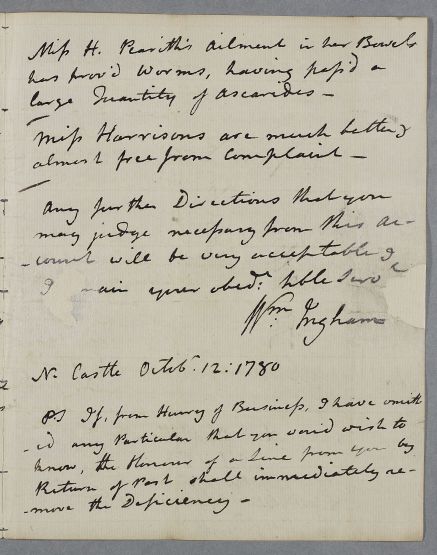 Miss H. Peariths ailment in her Bowels
has prov'd Worms, having pass'd a
large Quantity of Ascarides –
Miss Harrisons are much better &
almost free from Complaint –
Any further Directions that you
may judge necessary from this ac-
-count will be very acceptable &
I main your obedt. hble Servt
Wm. Ingham
N. Castle Octob. 12: 1780
PS If, from Hurry of Business, I have omitt
-ed any Particular that you would wish to
know, the Honour of a Line from you by
Return of Post shall immediately re-
-move the Deficiency –